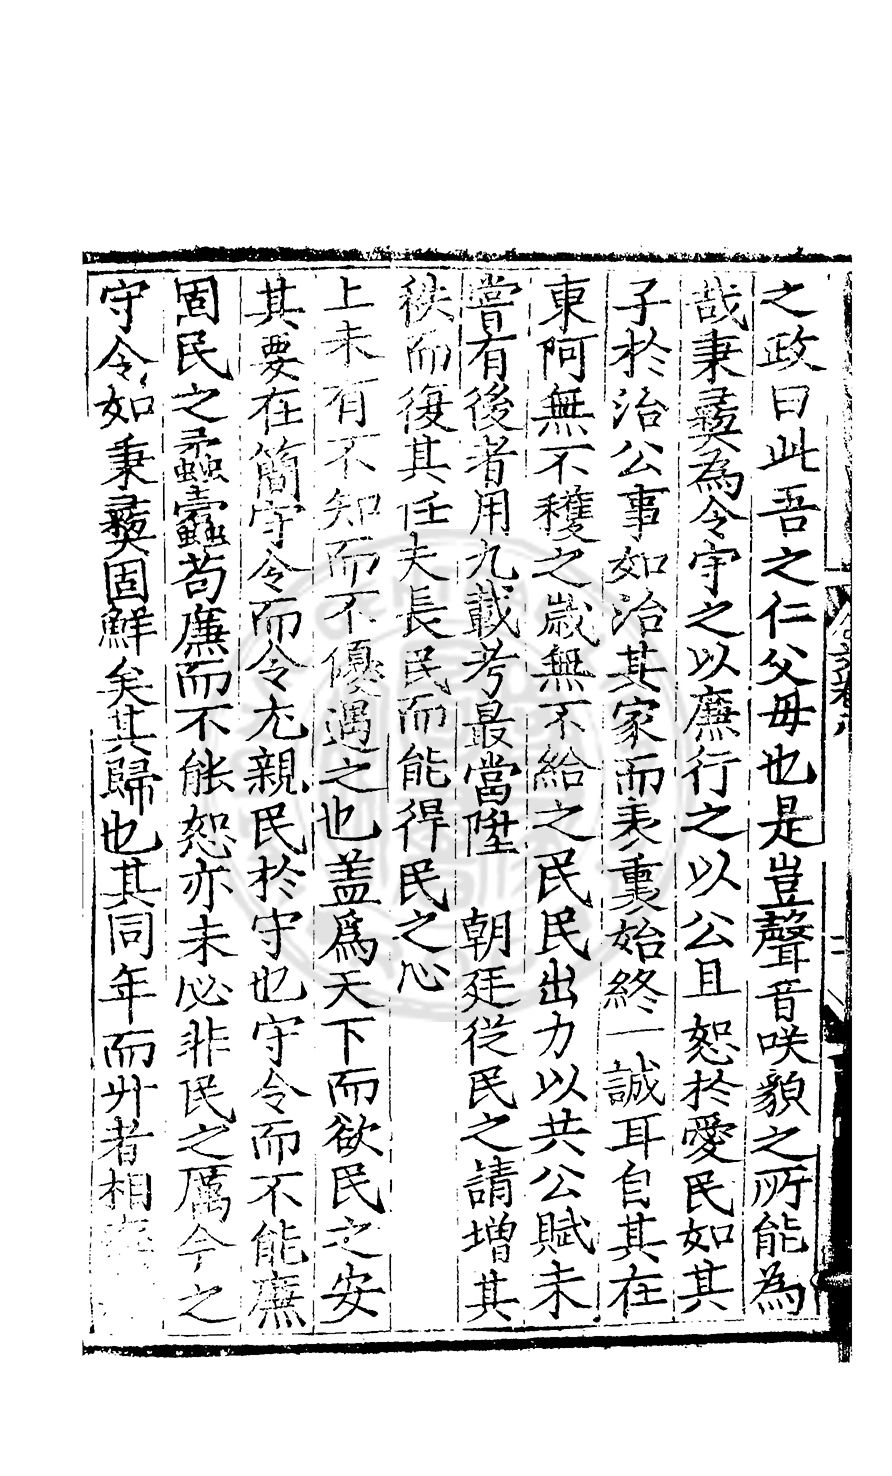 之政曰此吾之仁父毋也是豈聲音咲貌之所能為
哉秉彞為令守之以廉行之以公且恕於愛民如其
子於治公事如治其家而表裏始終一誠耳自其在
東阿無不穫之歲無不給之民民出力以共公賦未
嘗有後者用九載考最當陞　朝廷從民之請増其
秩而復其任夫長民而能得民之心
上未有不知而不優遇之也盖爲天下而欲民之安
其要在簡守令而令尤親民於守也守令而不能廉
固民之蟊蠹苟廉而不能恕亦未必非民之厲今之
守令如秉彞固鮮矣其歸也其同年而升者相